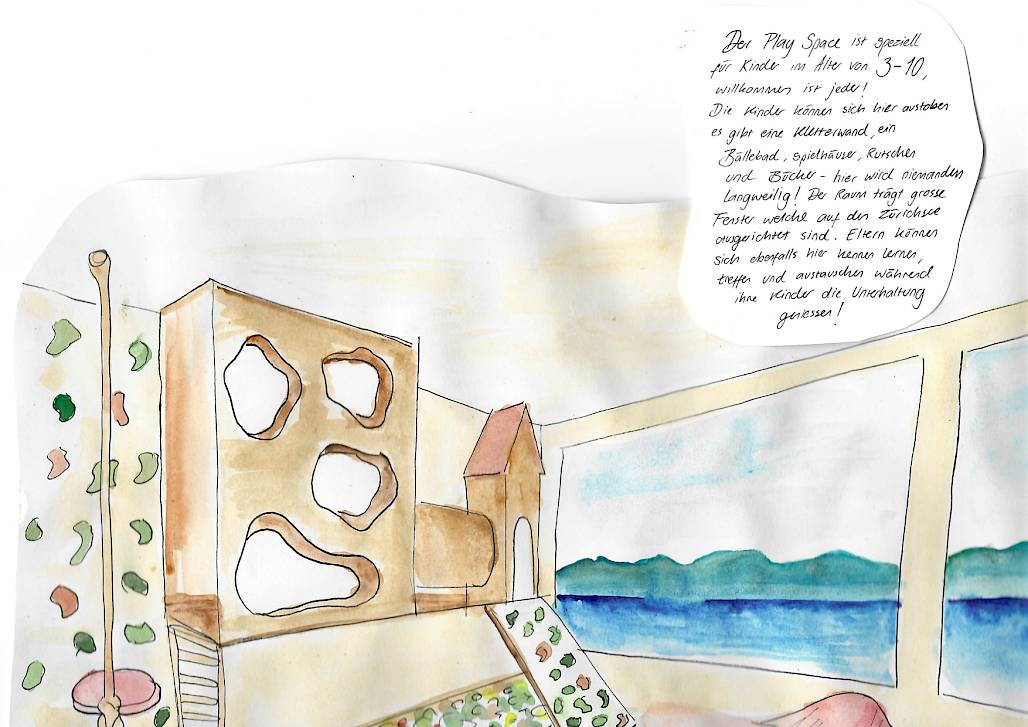 Der Play Space ist speziell
für Kinder im Alter von 3-10,
willkommen ist jeder!
Die Kinder können sich hier austoben
es gibt eine Kletterwand, ein
Bällebad, Spielhäuser, Rutschen
und Bücher - hier wird niemanden
langweilig! Der Raum trägt grosse
Fenster welche auf den Zürichsee
ausgerichtet sind. Eltern können
sich ebenfalls hier kennen lernen,
treffen und austauschen während
ihre Kinder die Unterhaltung
geniessen!